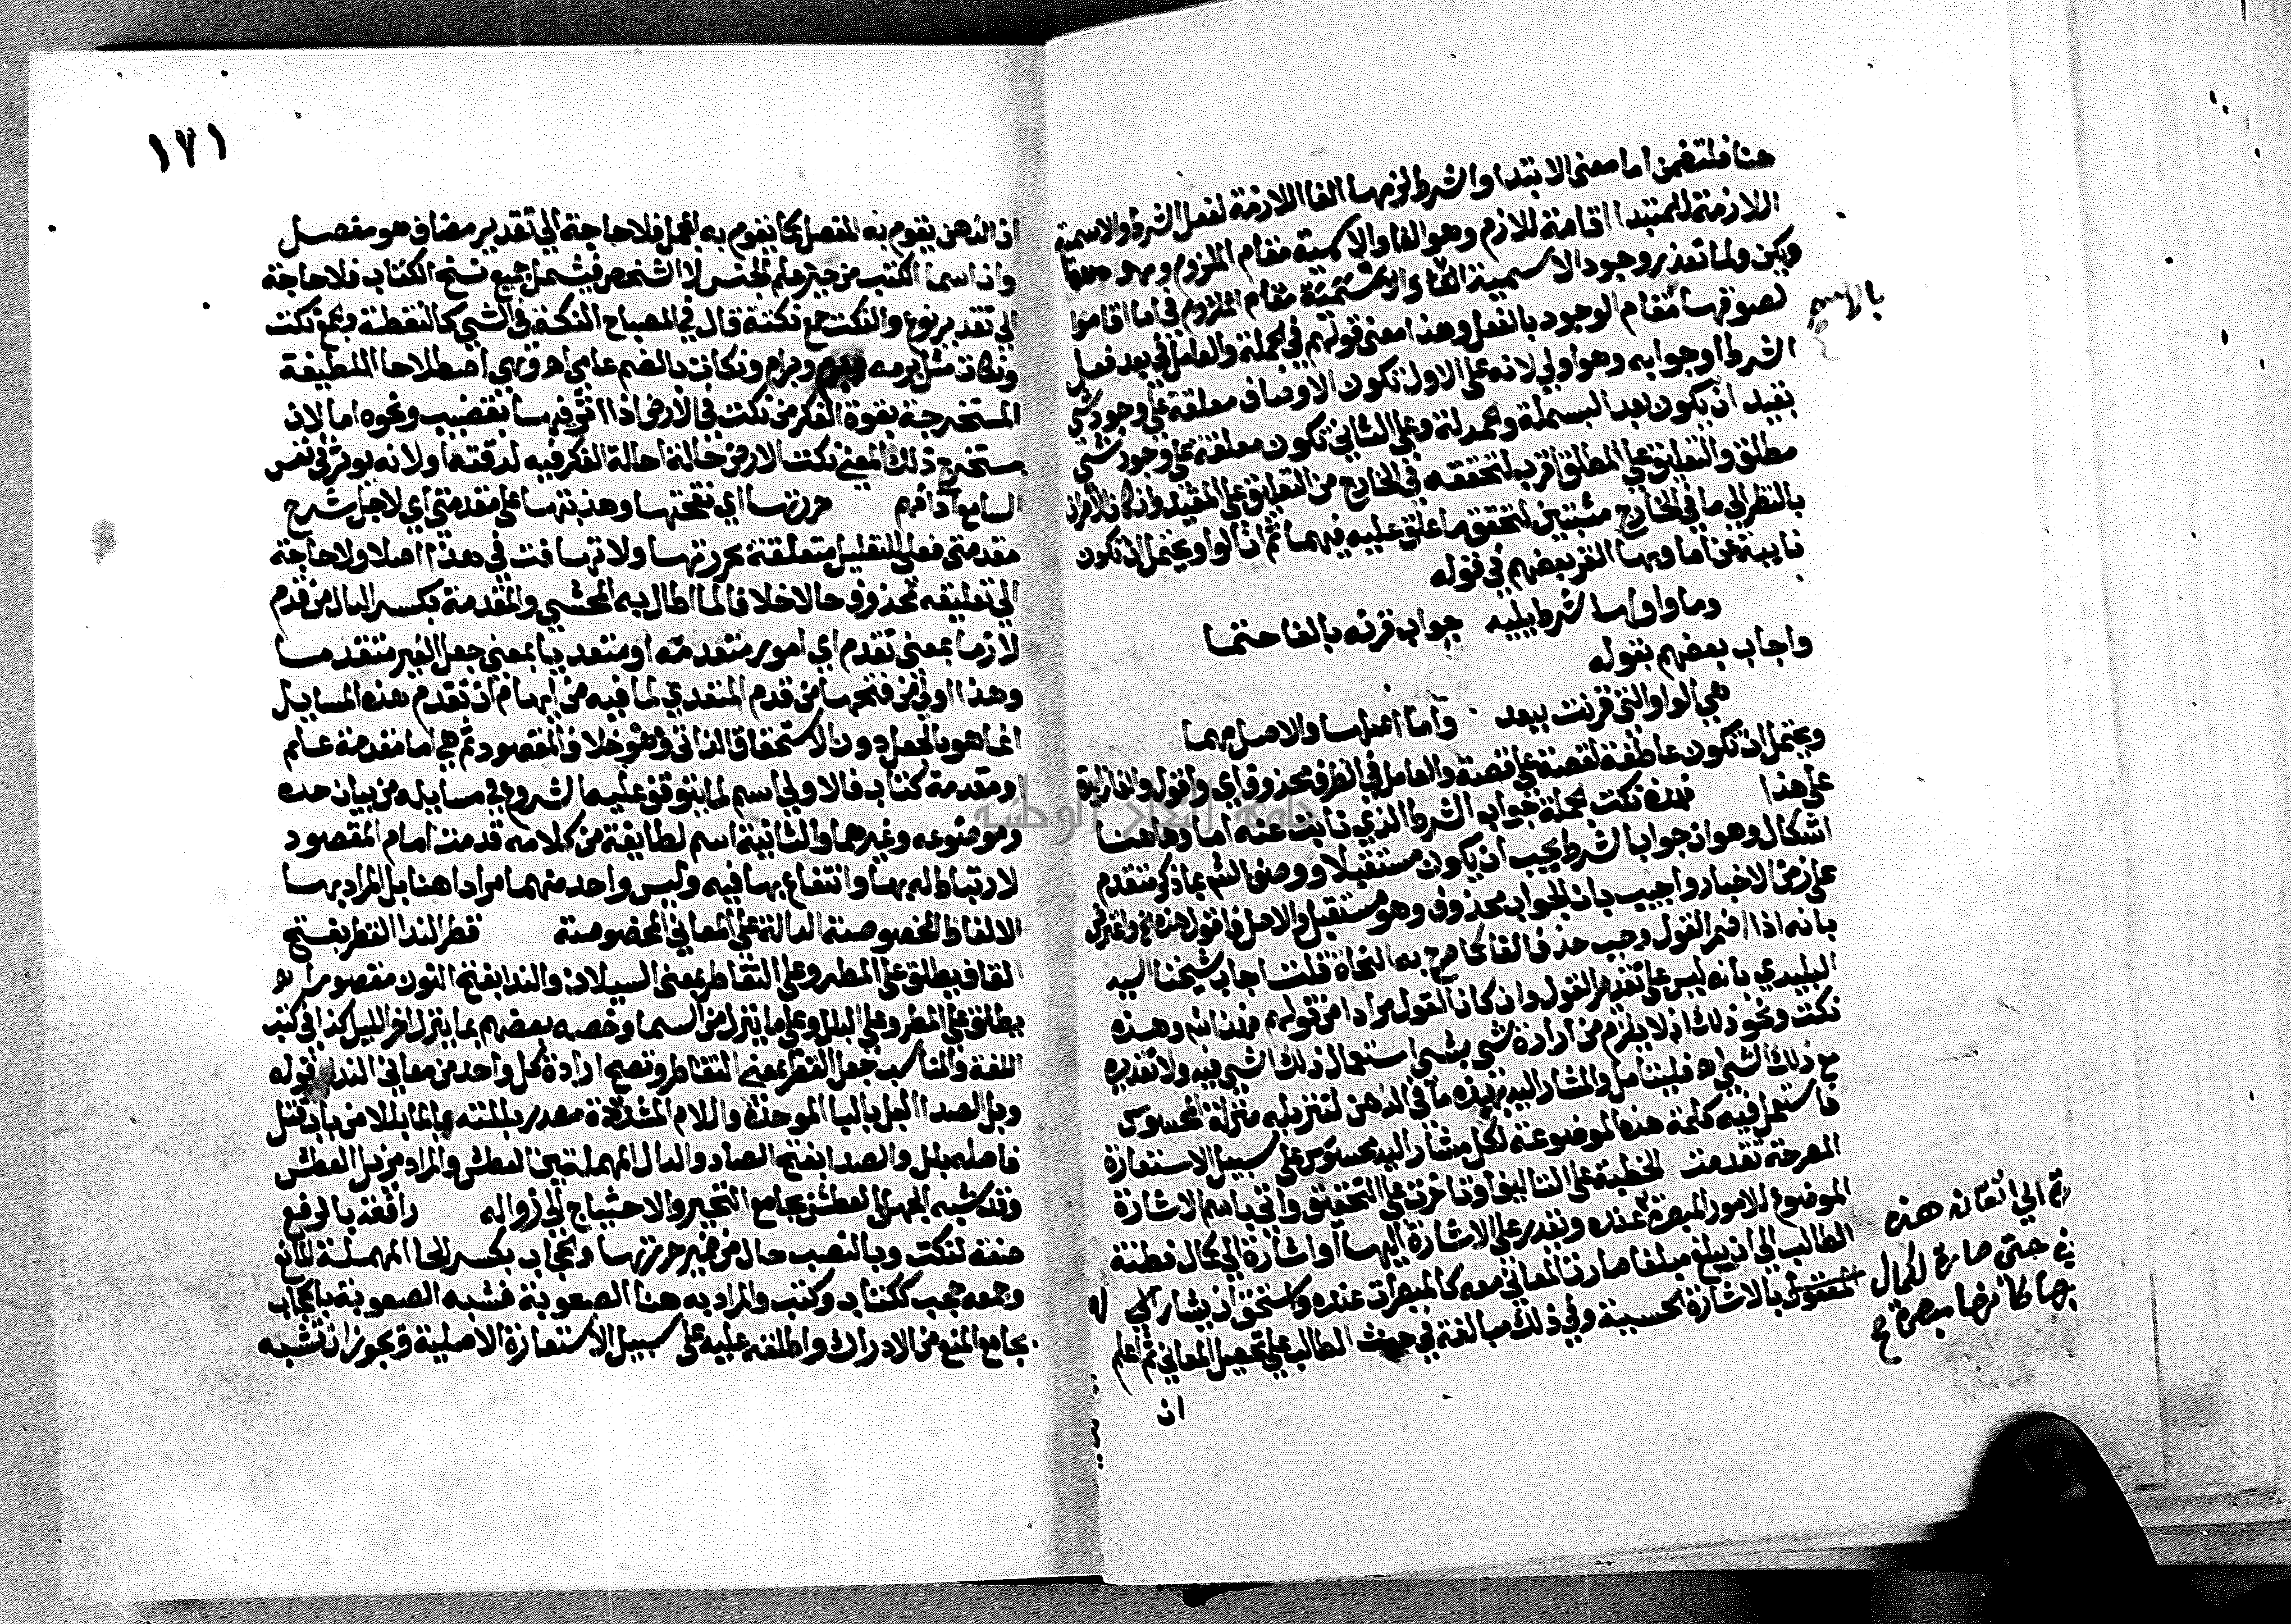 هنا فلتضمن اما معنى الابتدا والشرط لزمها الفا اللازمة لفعل الشرط والاسمية
اللازمة للمبتدا اقامة للازم وهو الفا والاسمية مقام الملزوم وهو
ويكن ولما تعذر وجود الاسمية مقام الملزوم في اما اقاموا
بالاسم
لصوقها مقام الوجود بالفعل وهذا معنى قولهم في الجملة والعامل في بعد فعل
الشرط او جوابه وهو اولى لانه على الاول تكون الاوصاف معلقة على وجود شي
بقيد ان يكون بعد البسملة والحمدلة وعلى الثاني تكون معلقة على وجود شي
مطلق والتعليق على المطلق اقرب لتحققه في الخارج من التعليق على المقيد وان كان الامران
بالنظر الى ما في الخارج مثبتين لتحقق ما علق عليه فيهما ثم ان الواو يحتمل ان تكون
نايبة عن اما وبها الغز بعضهم في قوله
وما واو لها شرط يليه جواب قرنه بالفا حتما
واجاب بعضهم بقوله
هي الواو التي قرنت ببعد واما اصلها والاصل مهما
ويحتمل ان تكون عاطفة لقصة على قصة والعامل في الظرف محذوف اي واقول والفا زايدة
على هذا فهذه نكت جملة جواب الشرط الذي نابت عنه اما وهاهنا
اشكال وهو ان جواب الشرط يجب ان يكون مستقبلا ووصف الشي بما ذكر متقدم
على زمن الاخبار واجيب بان الجواب محذوف وهو مستقبل والاصل فاقول هذه واعترض
بانه اذا اضمر القول وجب حذف الفا كما صرح به النحاة قلت اجاب شيخنا السيد
البليدي بانه ليس على تقدير القول وان كان القول مرادا من قولهم فهذا وهذه
نكت ونحو ذلك اذ لا يلزم من ارادة شي بشي استعمال ذلك الشي فيه ولا تقديره
مع ذلك الشي اه فليتامل والمشار اليه بهذه ما في الذهن لتنزيله منزلة المحسوس
فاستعمل فيه كلمة هذه الموضوعة لكل مشار اليه محسوس على سبيل الاستعارة
المصرحة تقدمت الخطبة على التاليف او تاخرت على التحقيق واتى باسم الاشارة
الموضوع للامور المبصرة عنده وتقدر على الاشارة اليها او اشارة الى كمال فطنة
الطالب الى ان يبلغ مبلغا صارت المعاني معه كالمبصرات عنده واستحق ان يشار الى له
المعقول بالاشارة الحسية وفي ذلك مبالغة في حث الطالب على تحصيل المعاني ثم اعلم
الى اتقانه هذه
حتى صارت لكمال
كانها مبصرة
ان
١٧١
اذ الذهن يقوم به المفصل كما يقوم به المجمل فلا حاجة الى تقدير مضاف هو مفصل
واذ اسما الكتب من حيز علم الجنس لا الشخص فيشمل جميع نسخ الكتاب فلا حاجة
الى تقدير نوع والنكت جمع نكتة قال في المصباح النكتة في الشي كالنقطة وجمع نكت
ونكات مثل برمة وبرام ونكات بالضم عامي اه وهي اصطلاحا اللطيفة
المستخرجة بقوة الفكر من نكت في الارض اذا اثر فيها بقضيب ونحوه اما لان
مستخرج ذلك المعنى نكت الارض حالة احالة الفكر فيه لدقته او لانه يوثر في نفس
السامع حررتها اي نقحتها وهذبتها على مقدمتي اي لاجل شرح
مقدمتي فعلى للتعليل متعلقة بحررتها ولا تهافت في هذا اصلا ولا حاجة
الى تعليقه بمحذوف حالا خلافا لما اطال به المحشي والمقدمة بكسر الدال من قدم
لازما بمعنى تقدم اي امور متقدمة او متعديا بمعنى جعل الغير متقدما
وهذا اولى من فتحها من قدم المتعدي لما فيه من ايهام ان تقدم هذه المسايل
انما هو بالجعل دون الاستحقاق الذاتي وهو خلاف المقصود ثم هي اما مقدمة علم
او مقدمة كتاب فالاولى اسم لما يتوقف عليه الشروع في مسايله من بيان حده
وموضوعه وغيرهما والثانية اسم لطايفة من كلامه قدمت امام المقصود
لارتباط له بها وانتفاع بها فيه وليس واحد منهما مرادا هنا بل المراد بها
الالفاظ المخصوصة الدالة على المعاني المخصوصة قطر الندا القطر بفتح
القاف يطلق على المطر وعلى التقاطر بمعنى السيلان والندا بفتح النون مقصورا
يطلق على المطر وعلى البلل وعلى ما ينزل من السما وخصه بعضهم بما ينزل اخر الليل كذا في كتب
اللغة والمناسب جعل القطر بمعنى التقاطر وتصح ارادة كل واحد من معاني الندا قوله
وبل الصدا البل بالبا الموحدة واللام المشددة مصدر بللته بالما بللا من باب قتل
فاصله بلل والصدا بفتح الصاد والدال المهملتين العطش والمراد من بل العطش
وقد شبه الجهل بالعطش بجامع التحير والاحتياج الى زواله رافعة بالرفع
صفة لنكت وبالنصب حال من ضمير حررتها وحجاب بكسر الحا المهملة المانع
وجمعه حجب ككتاب وكتب والمراد به هنا الصعوبة فشبه الصعوبة بالحجاب
بجامع المنع من الادراك واطلقه عليه على سبيل الاستعارة الاصلية ويجوز ان تشبه
جامعة النجاح الوطنية